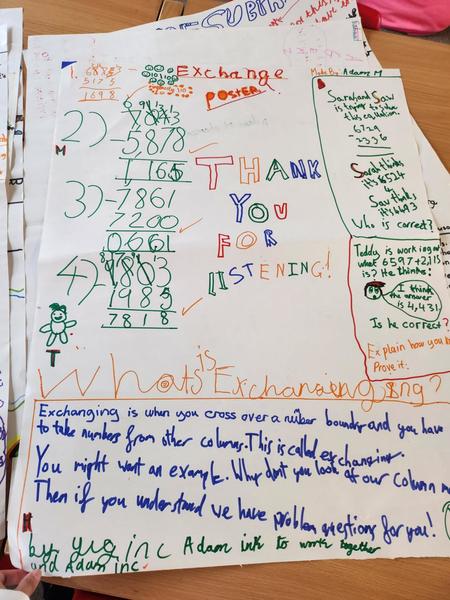 SUBTRA
Exchange
POSTER
Made By Adam M
1.
1698
2) 7043
- 5,878
1165
M
3) - 7861
7200
0661
4) - 9803
1985
7818
T
THANK
YOU
FOR
LISTENING!
Sarah and Sav
is trying to solve
this equation.
6729
- 2336
Sarah thinks
Sav thinks
Who is correct?
Teddy is working out
what 6597+2,
is? He thinks:
I think
the answer
is 4,431
Is he correct?
Explain how you
Prove it:
What is Exchanging?
Exchanging is when you cross over a number boundry and you have
to take numbers from other columns. This is called exchanging.
You might want an example. Why don't you look at our column
Then if you understand we have problem questions for you!
by yug inc Adam ink to work together
and Adam inc.